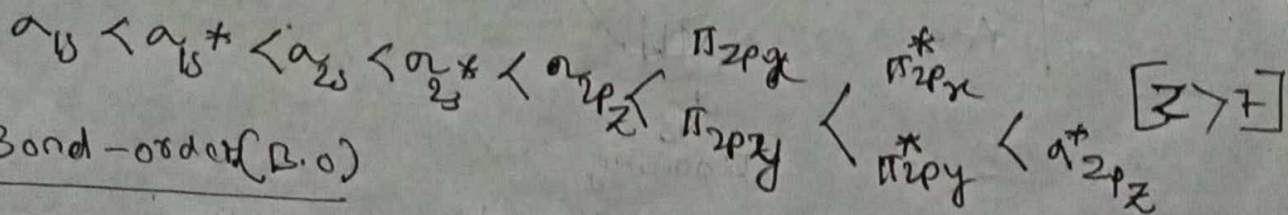 σ1s < σ1s* < σ2s < σ2s* < σ2pz < π2px π2py < π*2px π*2py < σ*2pz [Z>7]
Bond-order(B.O)